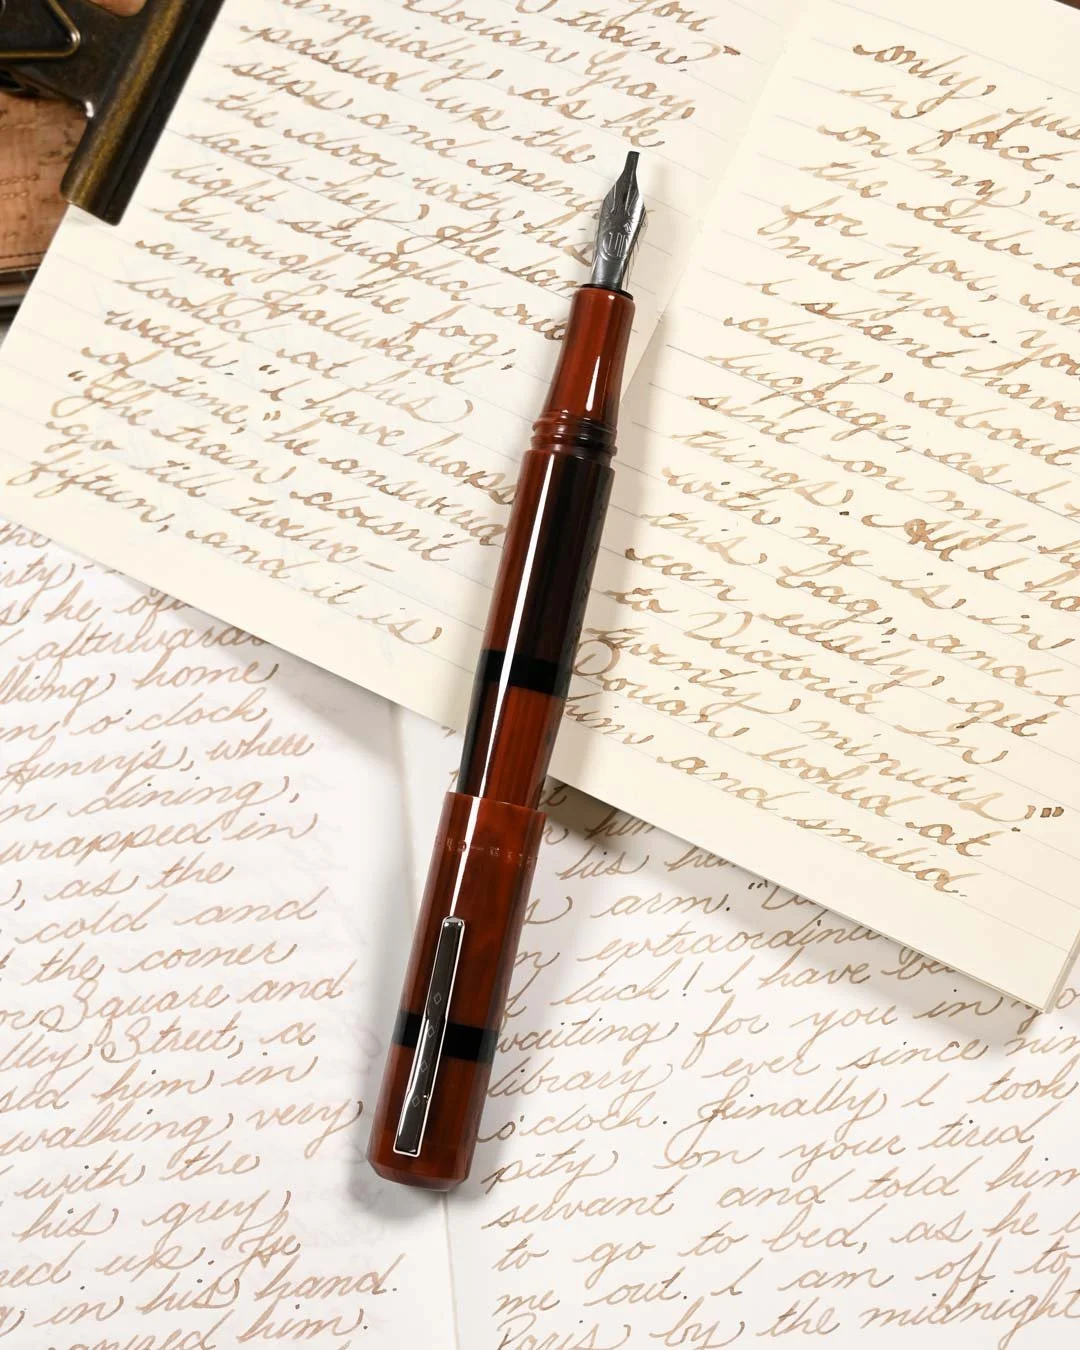 you
train?"
languidly, Dorian Gray,
passed up as he
steps and the
the door opened
latch-key, with his
light struggled The lam
through the out
and Hallward fog,
looked at his
watch. "I have heaps
of time," he answered
"The train doesn't
go till twelve-
fifteen, and it is
only just
in fact,
on my
the club to
for you,
met you. You
I shan't have
delay about
luggage, as I
sent on my
things. All I ha
with me is in
this bag, and
can easily get
to Victoria in
twenty minutes."
Dorian looked at
him and smiled.
the
rty-
s he
afterwards
lling home
n o'clock
Henry's, where
n dining,
wrapped in
, as the
cold and
t the corner
or Square and
dley Street, a
sed him in
walking very
with the
his grey
ned up. He
g in his hand.
him.
him
his
s arm. "
n extraordina
f luck! I have be
waiting for you in yo
library ever since nin
o'clock. Finally I took
pity on your tired
servant and told him
to go to bed, as he l
me out. I am off to
Paris by the midnight